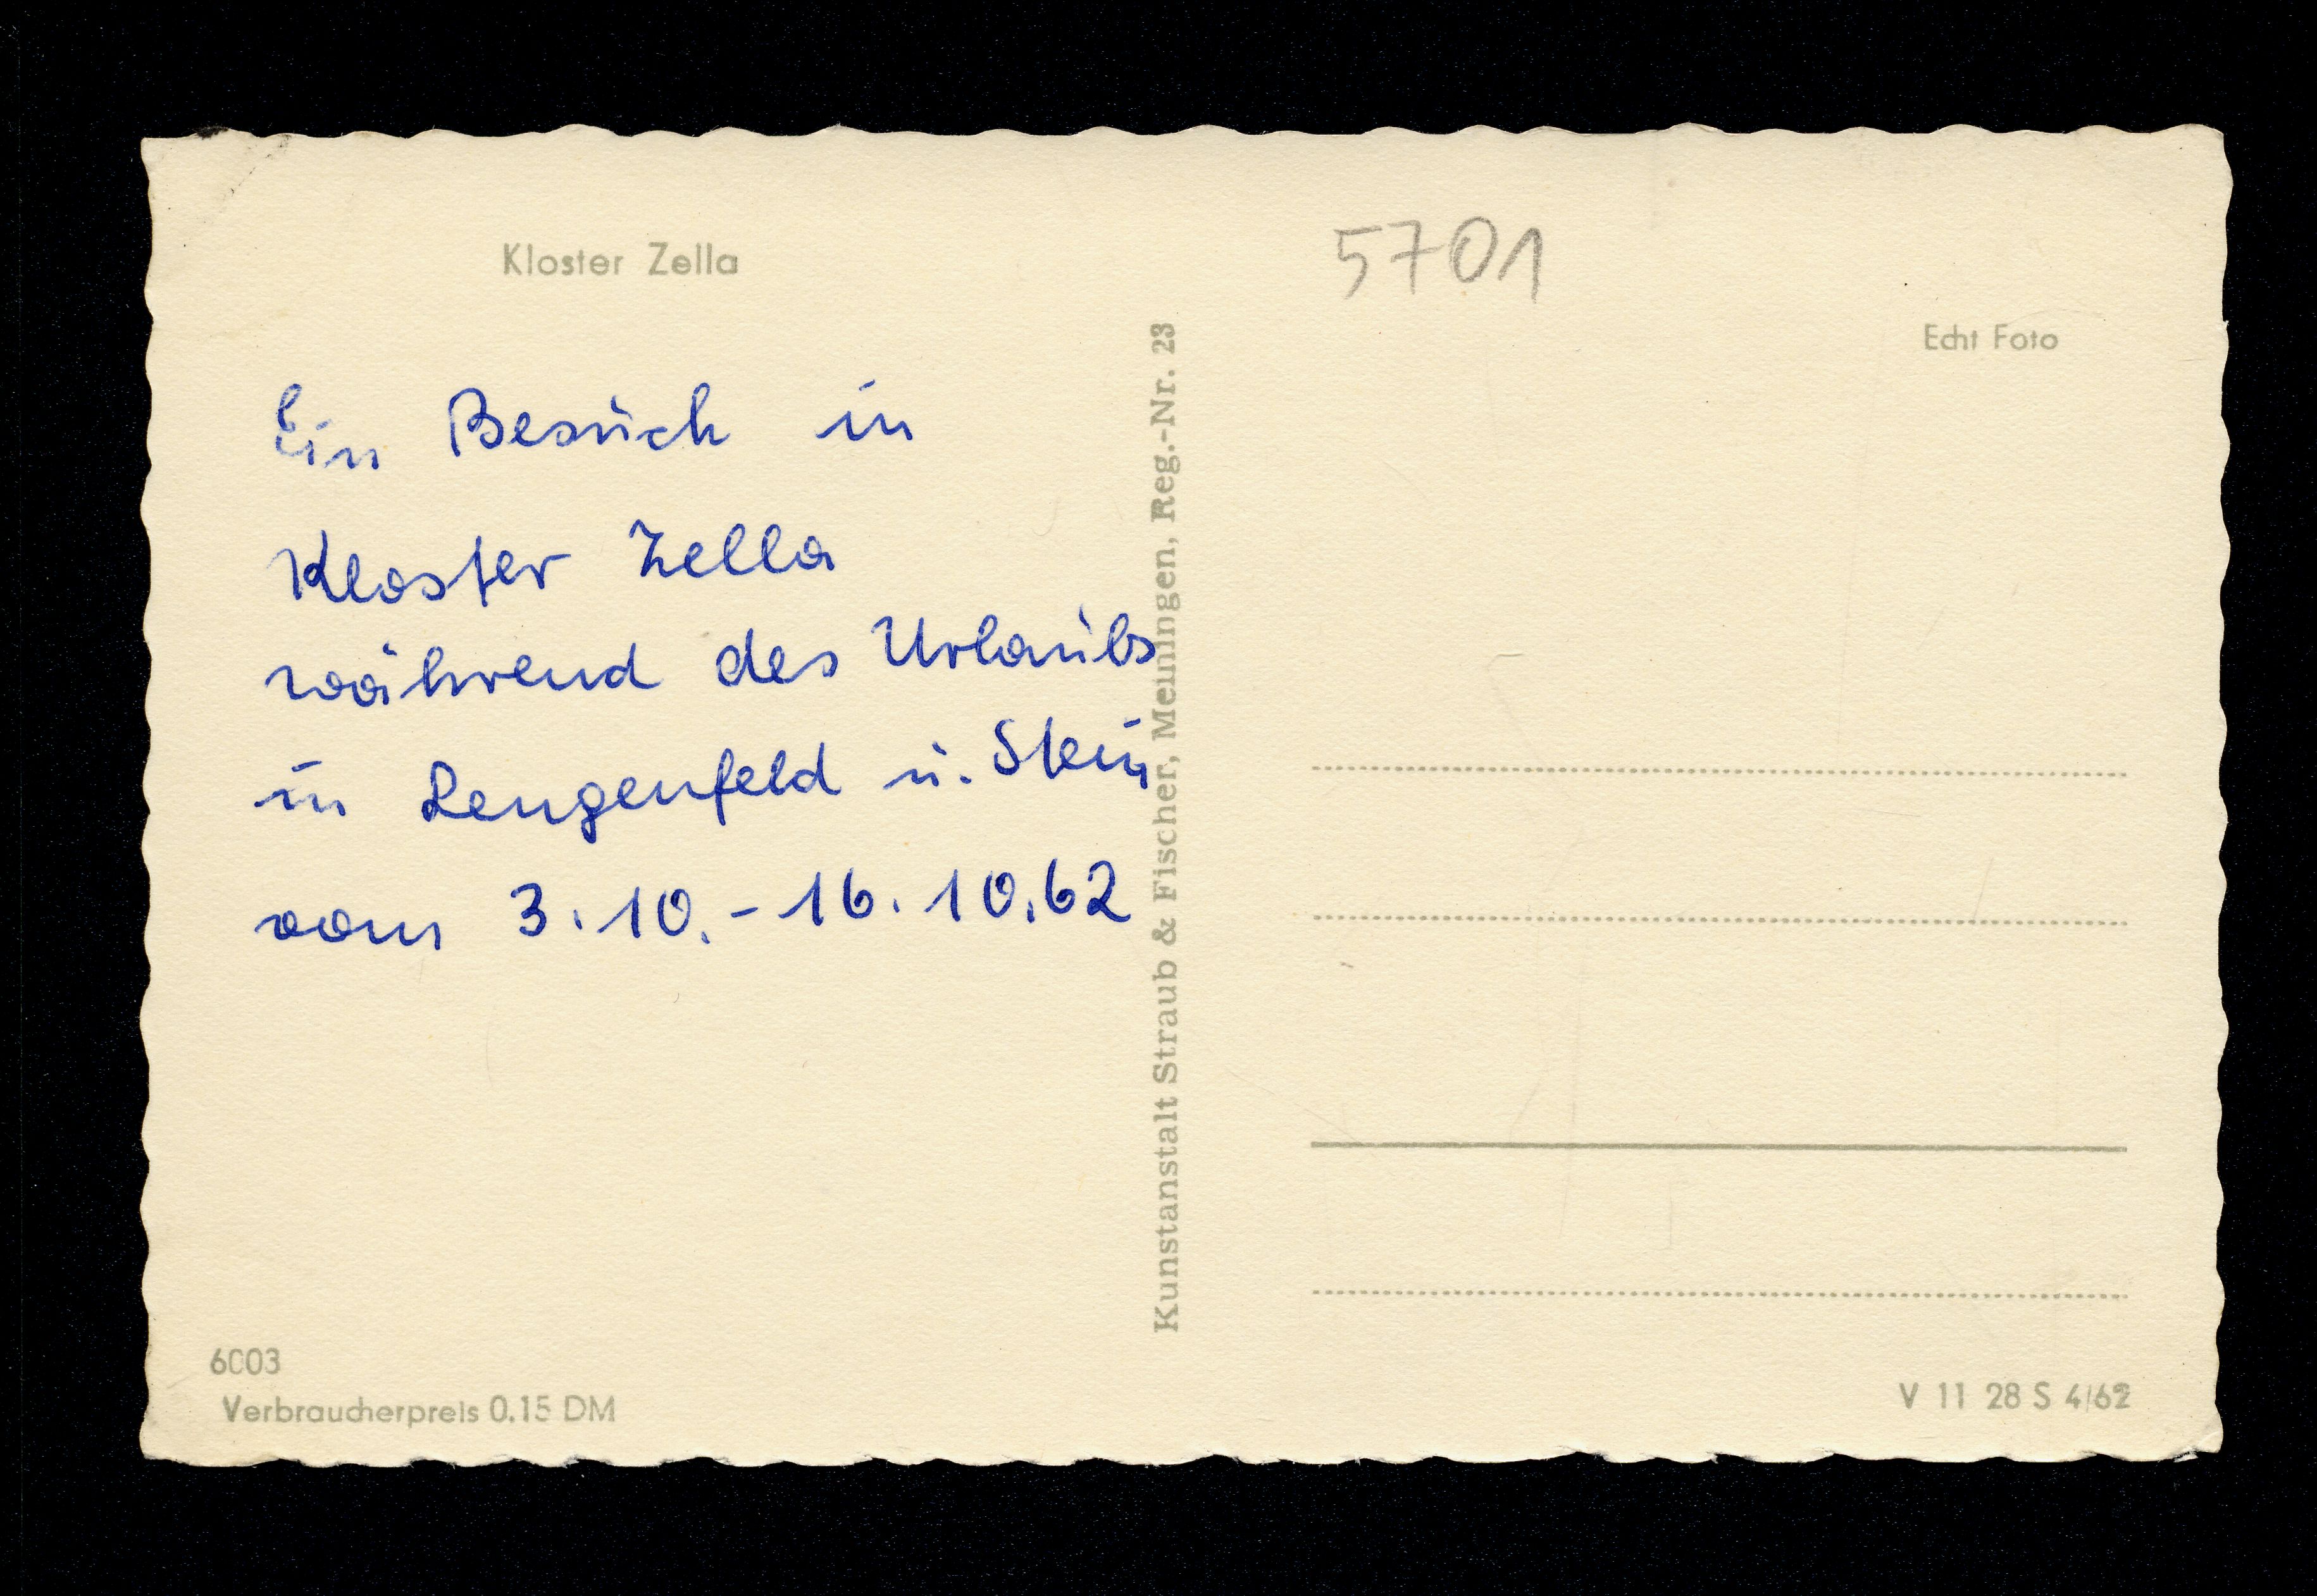 Kloster Zella
Ein Besuch in
Kloster Zella
während des Urlaubs
in Lengenfeld u. Stein
vom 3.10.-16.10.62
6003
Verbraucherpreis 0.15 DM
Kunstanstalt Straub & Fischer, Meiningen, Reg.-Nr. 23
5701
Echt Foto
V 11 28 S 4/62